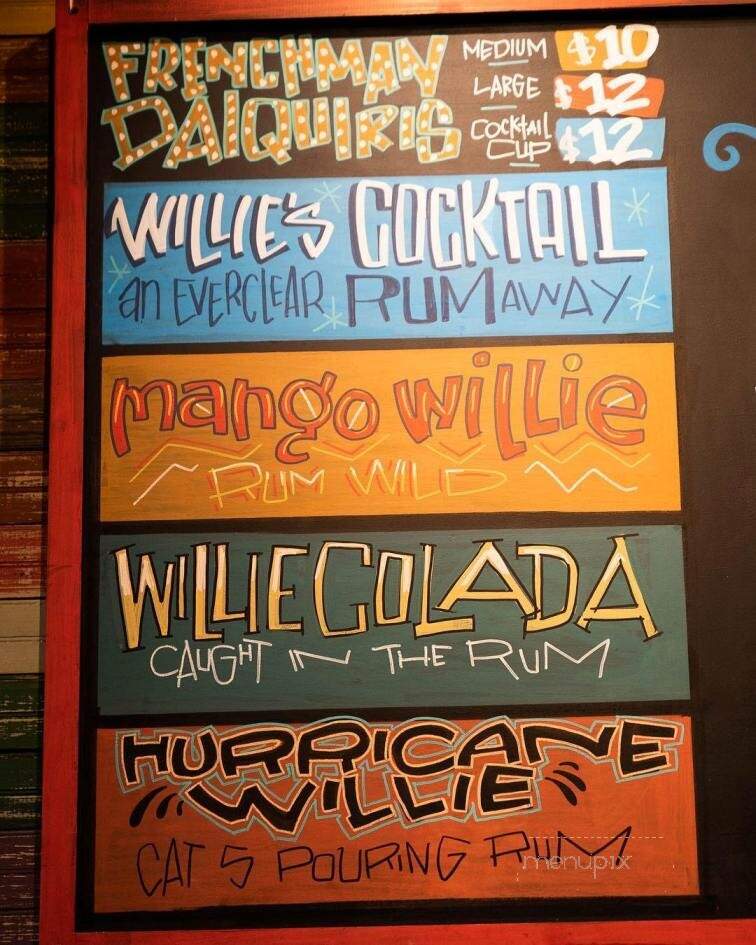 FRENCHMAN
DAIQUIRIS
MEDIUM $10
LARGE $12
COCKTAIL
CUP $12
WILLIE'S COCKTAIL
an EVERCLEAR RUMAWAY
mango willie
RUM WILD
WILLIECOLADA
CAUGHT IN THE RUM
HURRICANE
WILLIE
CAT 5 POURING RUM
menupix